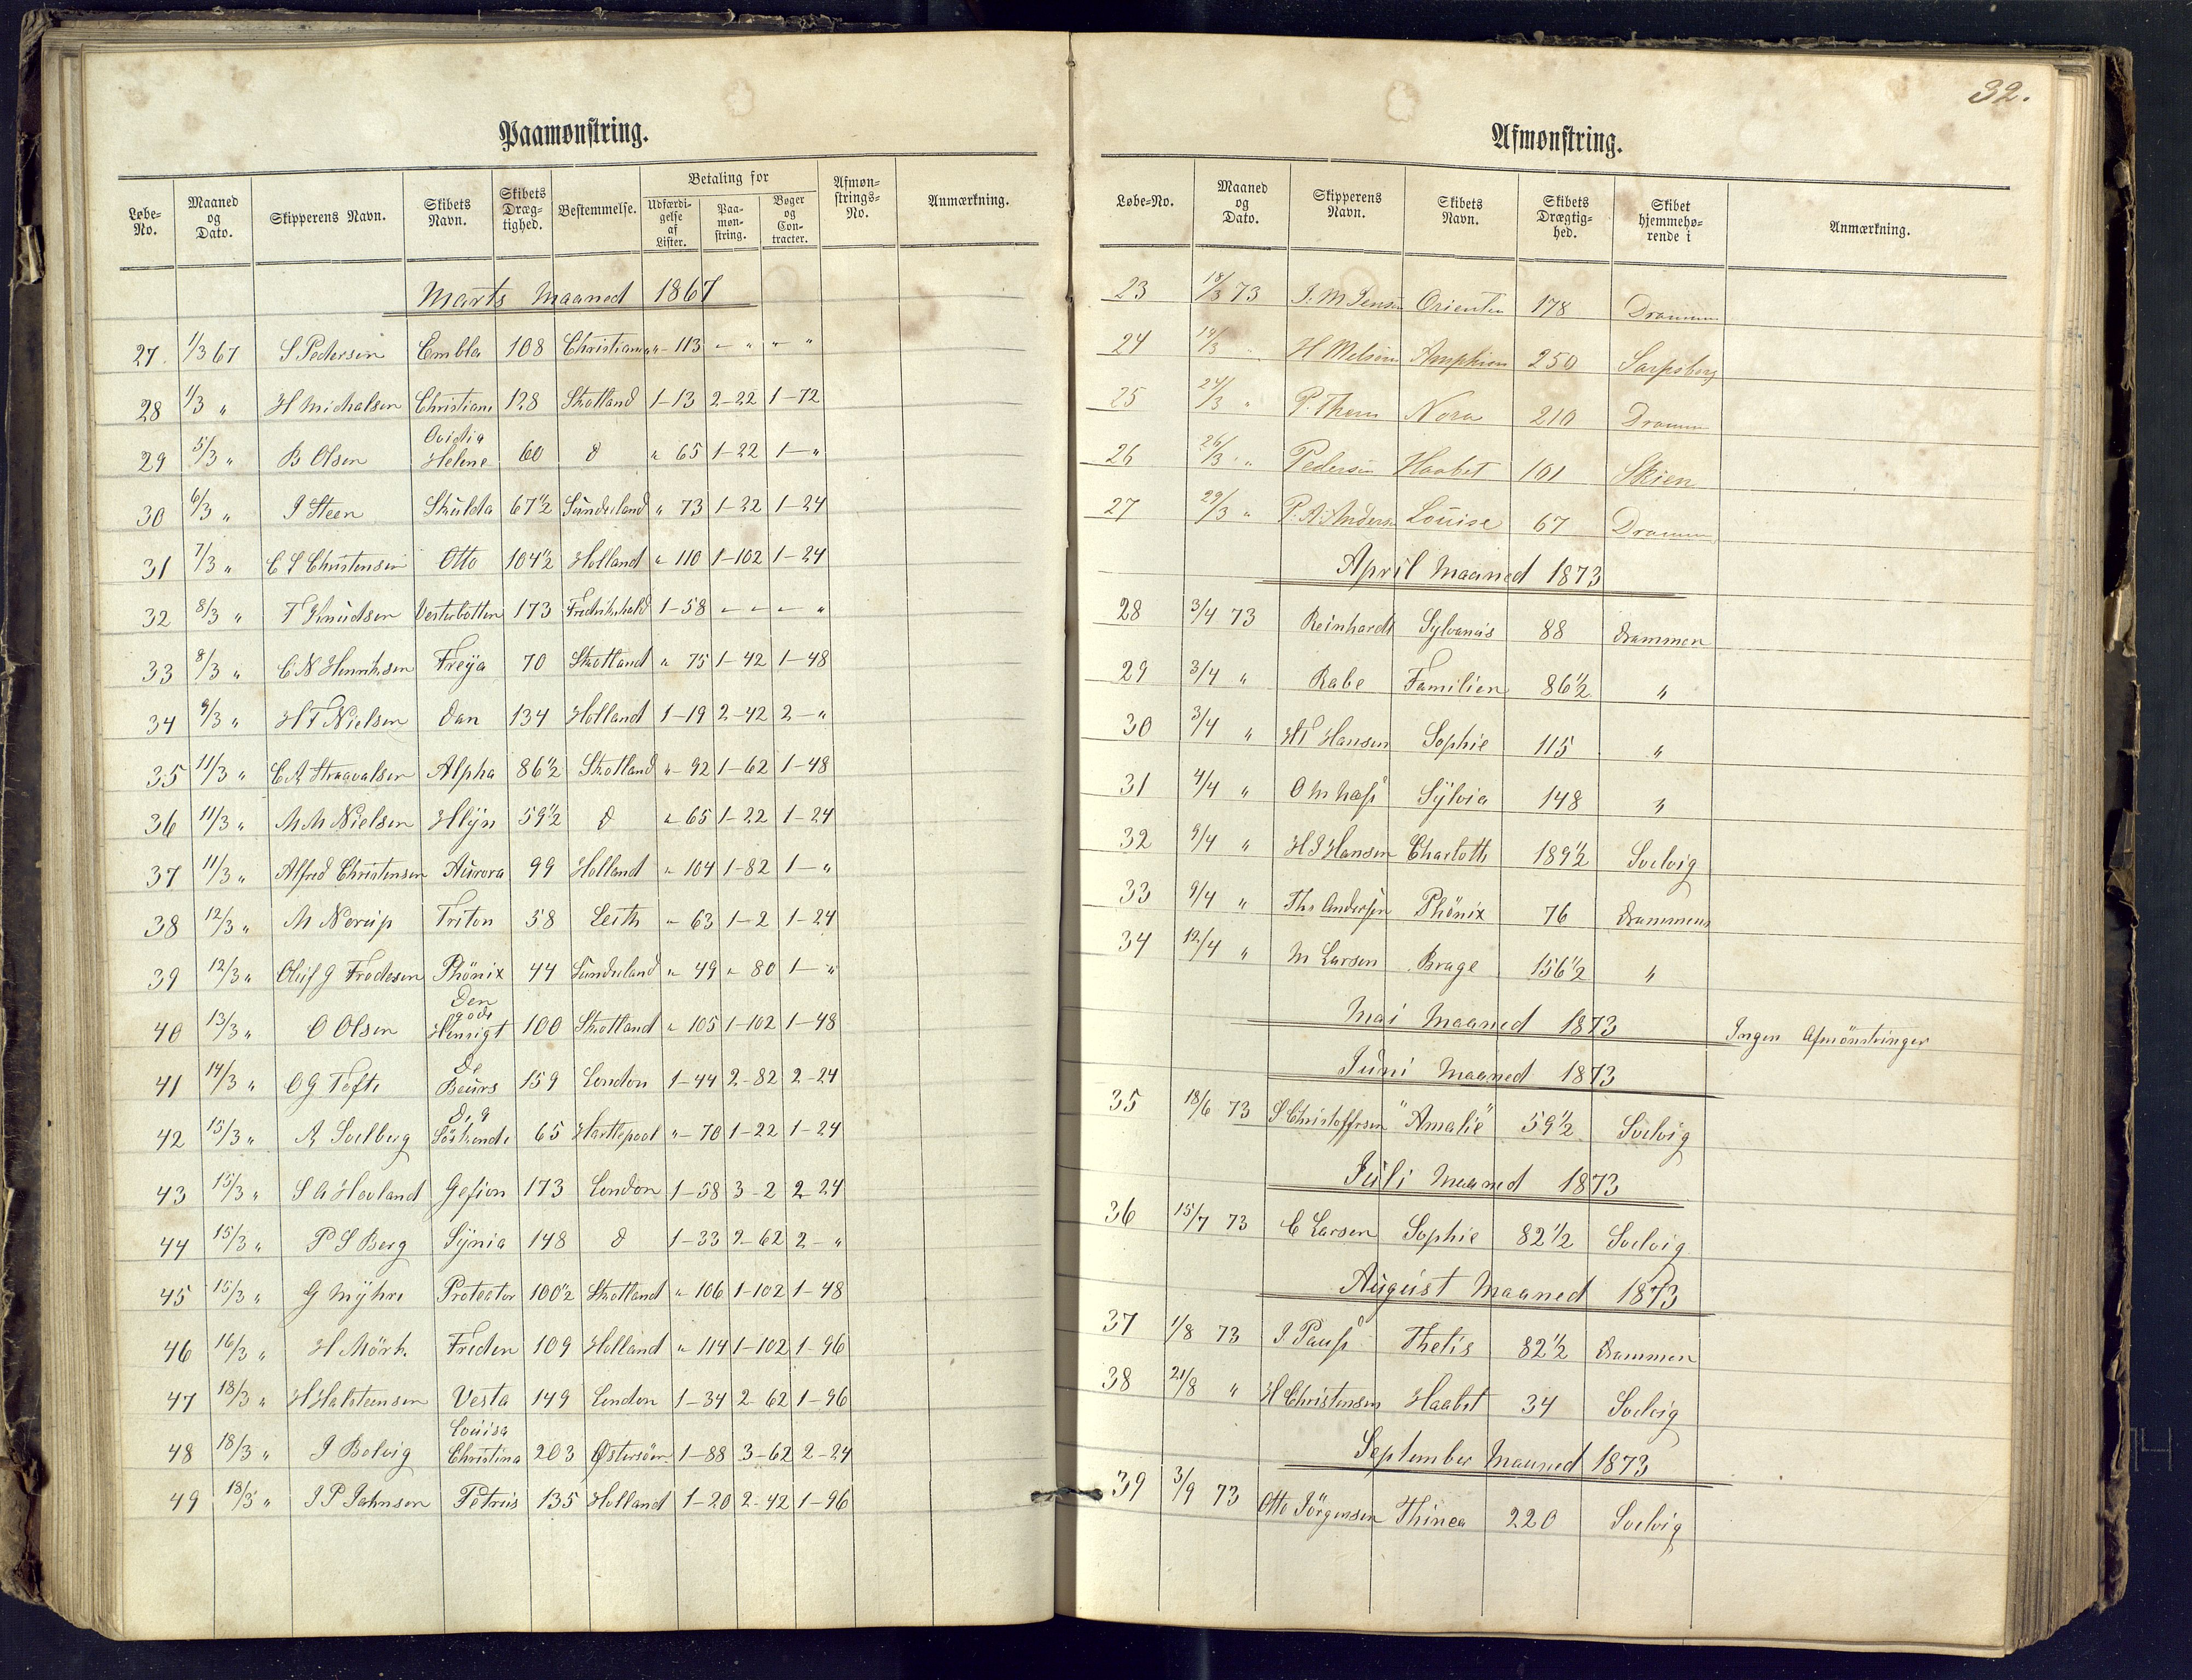 Paamønstring.
Løbe-No. Maaned og Dato. Skipperens Navn. Skibets Navn. Skibets Dræg-tighed. Bestemmelse. Betaling for Udfærdi-gelse af Lister. Paa-møn-string. Bøger og Con-tracter. Afmøn-strings-No. Anmærkning.
Marts Maaned 1867
27. 1/3 67 S Pedersen Embla 108 Christiania " - 113 - " - "
28 1/3 " H Michalsen Christiane 128 Skotland 1-13 2-22 1-72
29 5/3 " B Olsen Ovidia Helene 60 d " 65 1-22 1- "
30 6/3 " J Steen Skulda 67½ Sunderland " 73 1-22 1-24
31 7/3 " C S Christensen Otto 104½ Holland " 110 1-102 1-24
32 8/3 " T Knudsen Vesterbotten 173 Fredrikshald 1-58 - - - "
33 8/3 " C N Henriksen Freÿa 70 Skotland " 75 1-42 1-48
34 9/3 " H T Nielsen Dan 134 Holland 1-19 2-42 2- "
35 11/3 " C A Alpha 86½ Skotland " 92 1-62 1-48
36 11/3 " M M Nielsen Hlÿn 59½ d " 65 1-22 1-24
37 11/3 " Alfred Christensen Aurora 99 Holland " 104 1-82 1- "
38 12/3 " M Nerup Triton 58 Leith " 63 1-2 1-24
39 12/3 " Oluf G Fredesen Phönix 44 Sunderland " 49 " 80 1- "
40 13/3 " O Olsen Den gode Hensigt 100 Skotland " 105 1-102 1-48
41 14/3 " O G Tofte De Beurs 159 London 1-44 2-82 2-24
42 15/3 " A Solberg Söskende 65 Hartlepool " 70 1-22 1-24
43 15/3 " S A Hovland Gefion 173 London 1-58 3-2 2-24
44 15/3 " P S Berg Sÿnia 148 d 1-33 2-62 2- "
45 15/3 " G Mÿhre Protector 100½ Skotland " 106 1-102 1-48
46 16/3 " H Mörk Freden 109 Holland " 114 1-102 1-96
47 18/3 " H Halsteensen Vesta 149 London 1-34 2-62 1-96
48 18/3 " J Bolvig Louisa Christina 203 Østersöen 1-88 3-62 2-24
49 18/3 " J P Jahnsen Petrus 135 Holland 1-20 2-42 1-96
32.
Afmønstring.
Løbe-No. Maaned og Dato. Skipperens Navn. Skibets Navn. Skibets Drægtig-hed. Skibet hjemmehø-rende i Anmærkning.
23 18/3 73 J. M Jensen Orienten 178 Drammen
24 19/3 " H Melsom Amphion 250 Sarpsborg
25 24/3 " P. Thom Nora 210 Drammen
26 26/3 " Pedersen Haabet 101 Skien
27 29/3 " P. A. Anders Louise 67 Drammen
April Maaned 1873
28 3/4 73 Reinhardt Sylvanus 88 Drammen
29 3/4 " Rabe Familien 86½ "
30 3/4 " H T Hansen Sophie 115 "
31 4/4 " O M Sÿlvia 148 "
32 9/4 " H J Hansen Charlotte 189½ Svelvig
33 9/4 " Ths Andersen Phönix 76 Drammen
34 12/4 " M Larsen Brage 156½ "
Mai Maaned 1873 Ingen Afmönstringer
Juni Maaned 1873
35 18/6 73 S Christoffersen "Amalie" 59½ Svelvig
Juli Maaned 1873
36 15/7 73 C Larsen Sophie 82½ Svelvig
August Maaned 1873
37 1/8 73 J. Paus Thetis 82½ Drammen
38 21/8 " H Christensen Haabet 34 Svelvig
September Maaned 1873
39 3/9 73 Otto Jörgensen Thinea 220 Svelvig